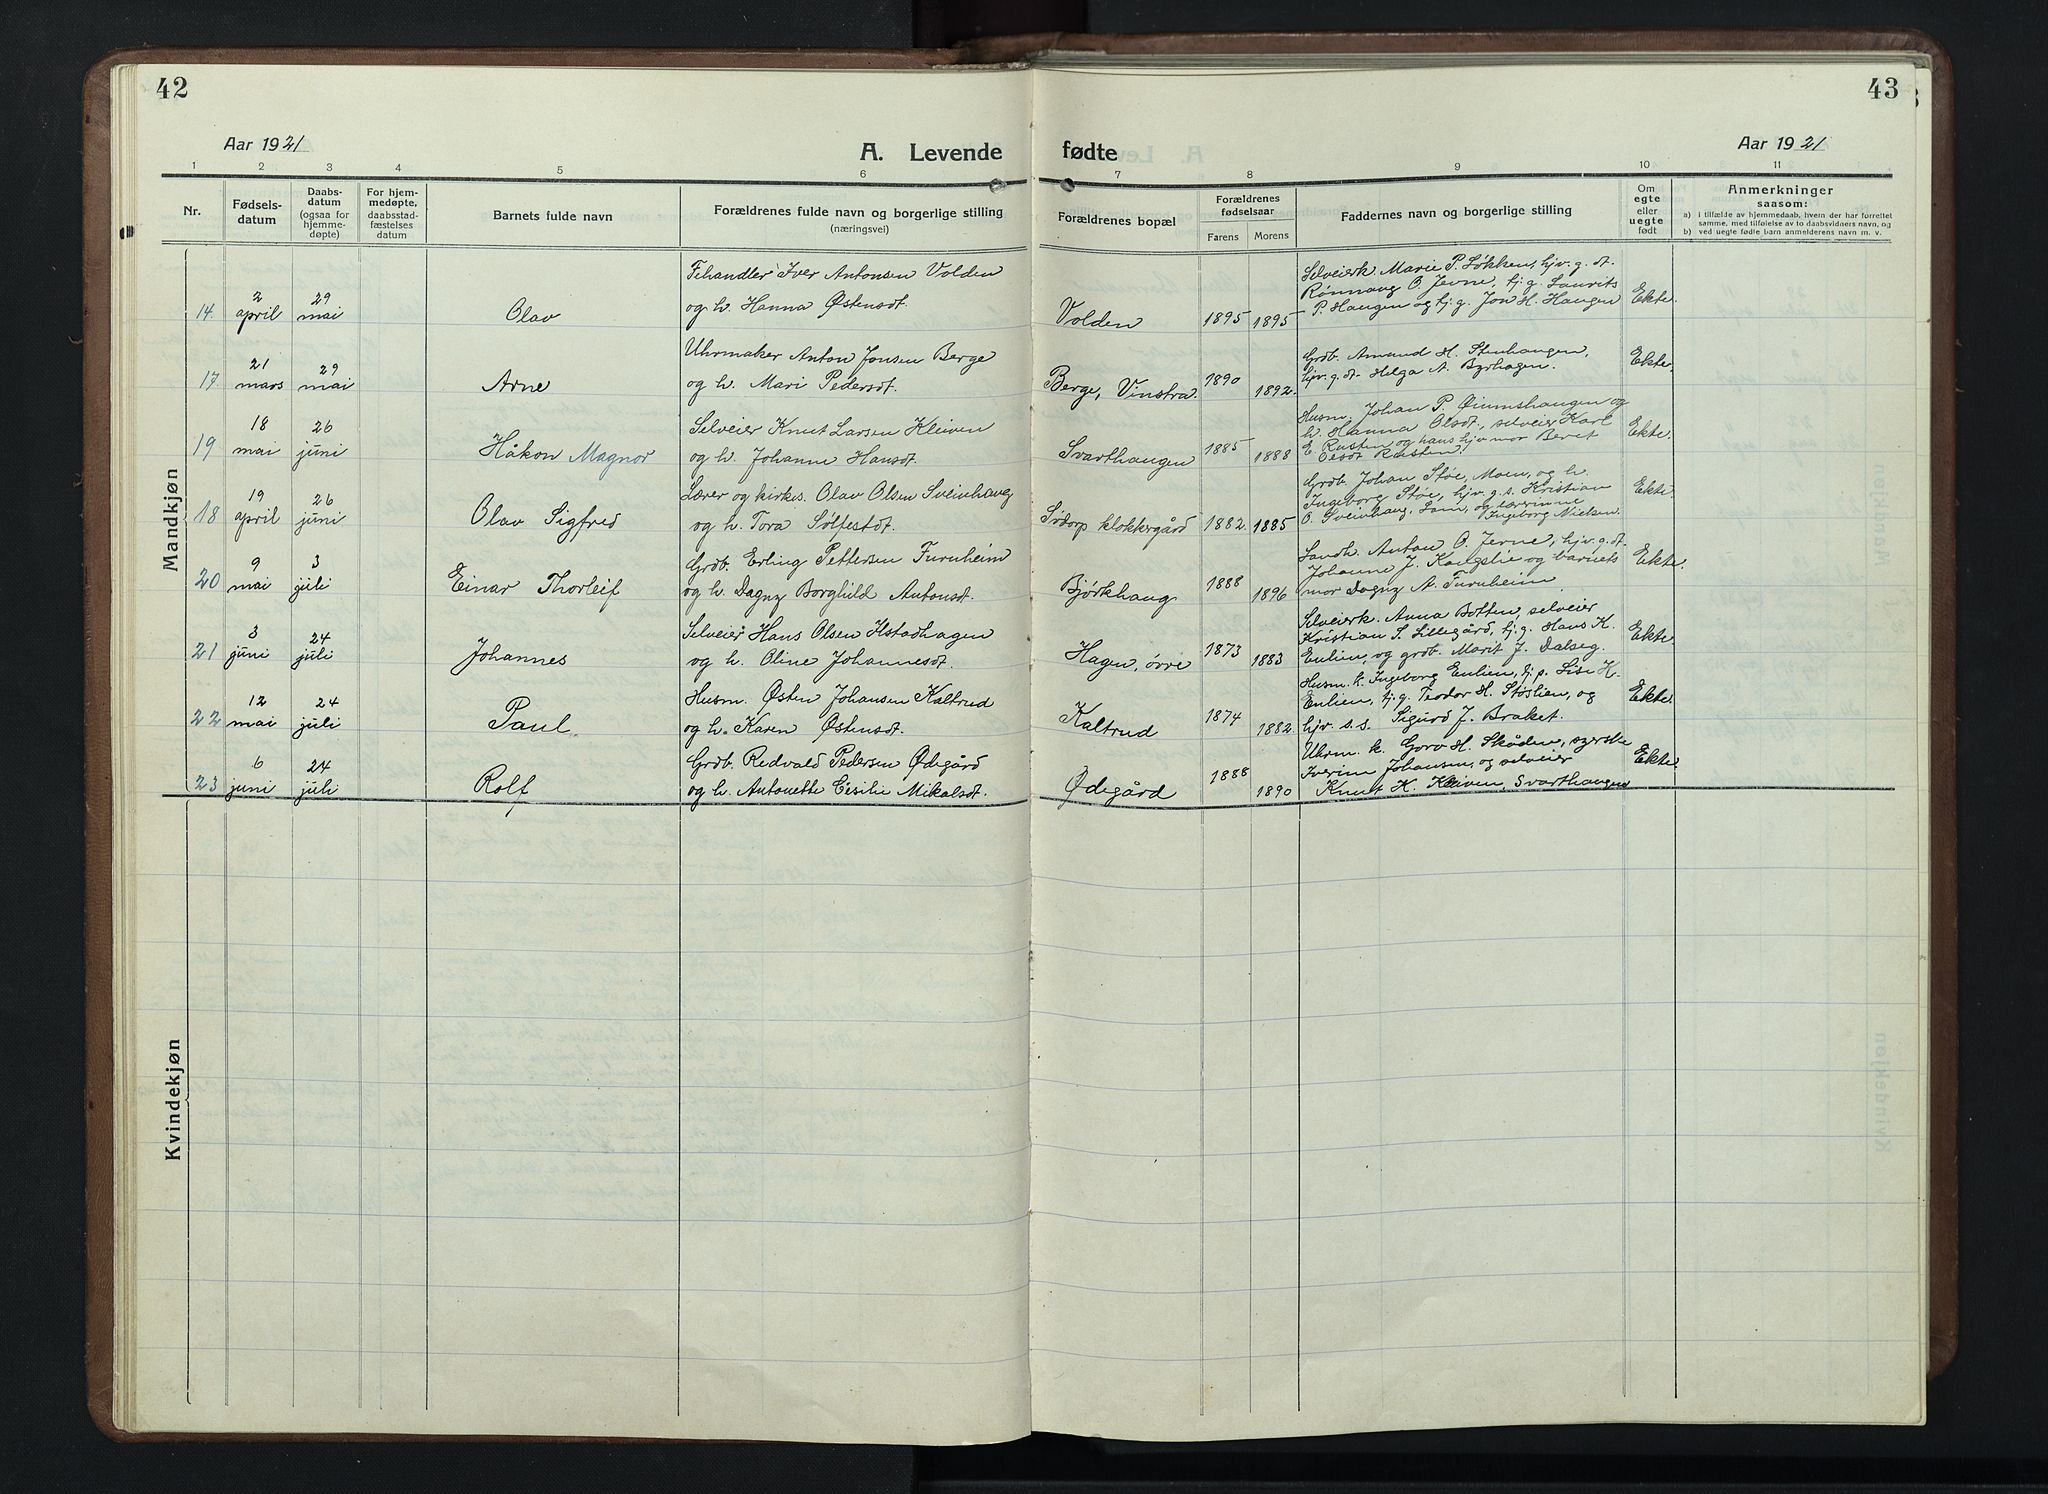 42
43
Aar 1921
A. Levende
fødte
Aar 1921
1 2 3 4 5 6 7 8 9 10 11
Nr.
Fødsels-
datum
Daabs-
datum
(ogsaa for
hjemme-
døpte)
For hjem-
medøpte,
daabsstad-
fæstelses
datum
Barnets fulde navn
Forældrenes fulde navn og borgerlige stilling
(næringsvei)
Forældrenes bopæl
Forældrenes
fødselsaar
Farens Morens
Faddernes navn og borgerlige stilling
Om
egte
eller
uegte
født
Anmerkninger
saasom:
a) i tilfælde av hjemmedaab, hvem der har forrettet
samme, med tilføielse av to daabsvidners navn, og
b) ved uegte fødte barn anmelderens navn m. v.
Mandkjøn
14. 2 april 29 mai Olav
Fehandler Iver Antonsen Volden
og h. Hanna Østensdt.
Volden 1895 1895
Selveierk. Marie P. Løkken, hjv. g. dt.
Rønnaug O. Jevne, tj. g. Laurits
P. Haugen og tj. g. Jon H. Haugen
Ekte.
17 21 mars 29 mai Arne
Uhrmaker Anton Jonsen Berge
og h. Mari Pedersdt.
Berge, Vinstra. 1890 1892.
Grdb. Amund H. Stenhaugen,
hjv. g. dt. Helga A. Byrhagen.
Ekte.
19 18 mai 26 juni Håkon Magnor
Selveier Knut Larsen Kleiven
og h. Johanne Hansdt.
Svarthaugen 1885 1888
Husm. Johan P. Øiumshaugen og
h. Hanna Olsdt., selveier Karl
E. Rusten og hans hjv mor Beret
Olsdt Rusten.
Ekte.
18 19 april 26 juni Olav Sigfred
Lærer og kirkes. Olav Olsen Sveinhaug
og h. Tora Sølfestdt.
Sødorp klokkergård 1882 1885
Grdb. Johan Støe, Moen, og h.
Ingeborg Støe, hjv. g. s. Kristian
O. Sveinhaug, Lom, og lærerinne
Ingeborg Nielsen.
Ekte.
20 9 mai 3 juli Einar Thorleif
Grdb. Erling Pettersen Furuheim
og h. Dagny Borghild Antonsdt.
Bjørkhaug 1888 1896
Landh. Anton O. Jevne, hjv. g. dt.
Johanne J. Kongslie og barnets
mor Dagny A. Furuheim
Ekte.
21 3 juni 24 juli Johannes
Selveier Hans Olsen Ilstadhagen
og h. Oline Johannesdt.
Hagen, øvre 1873 1883
Selveierk. Anna Botten, selveier
Kristian S. Lillegård, tj. g. Hans K.
Enlien, og grdb. Marit J. Dalseg.
Ekte.
22 12 mai 24 juli Paul
Husm. Østen Johansen Kaltrud
og h. Karen Østensdt.
Kaltrud 1874 1882
Husm. k. Ingeborg Enlien, tj. p. Lise H.
Enlien, tj. g. Teodor H. Støslien, og
hjv. s. s. Sigurd J. Braket.
Ekte.
23 6 juni 24 juli Rolf
Grdb. Redvald Pedersen Ødegård
og h. Antonette Cesilie Mikalsdt.
Ødegård 1888 1890
Uhrm. k. Goro H. Skåden, syerske
Iverine Johansen, og selveier
Knut H. Kleiven, Svarthaugen
Ekte.
Kvindekjøn